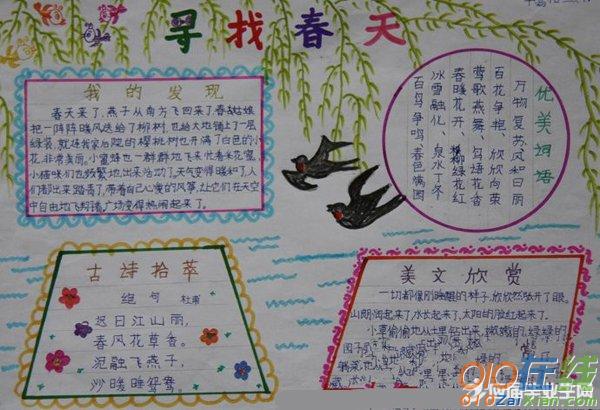 寻找春天
我的发现
春天来了,燕子从南方飞回来了,春姑娘
把一阵阵暖风送给了柳树,也给大地铺上了一层
绿装,就连我家后院的樱桃树也开满了白色的小
花,非常美丽。小蜜蜂也一群群地飞来忙着采花蜜,
小猫咪们也频繁地出来活动了,天气变得暖和了,人
们都出来踏青了,带着自己心爱的风筝,让它们在天空
中自由地飞翔着,广场变得热闹起来了。
优美词语
万物复苏 风和日丽
百花争艳、欣欣向荣
莺歌燕舞、鸟语花香
春暖花开、柳绿花红
冰雪融化、泉水丁冬
百鸟争鸣、春色满园
古诗拾萃
绝句 杜甫
迟日江山丽,
春风花草香。
泥融飞燕子,
沙暖睡鸳鸯。
美文欣赏
一切都像刚睡醒的样子,欣欣然张开了眼。
山朗润起来了,水长起来了,太阳的脸红起来了。
小草偷偷地从土里钻出来,嫩嫩的,绿绿的
园子
910在线
910zaixian.com
应届毕业学网